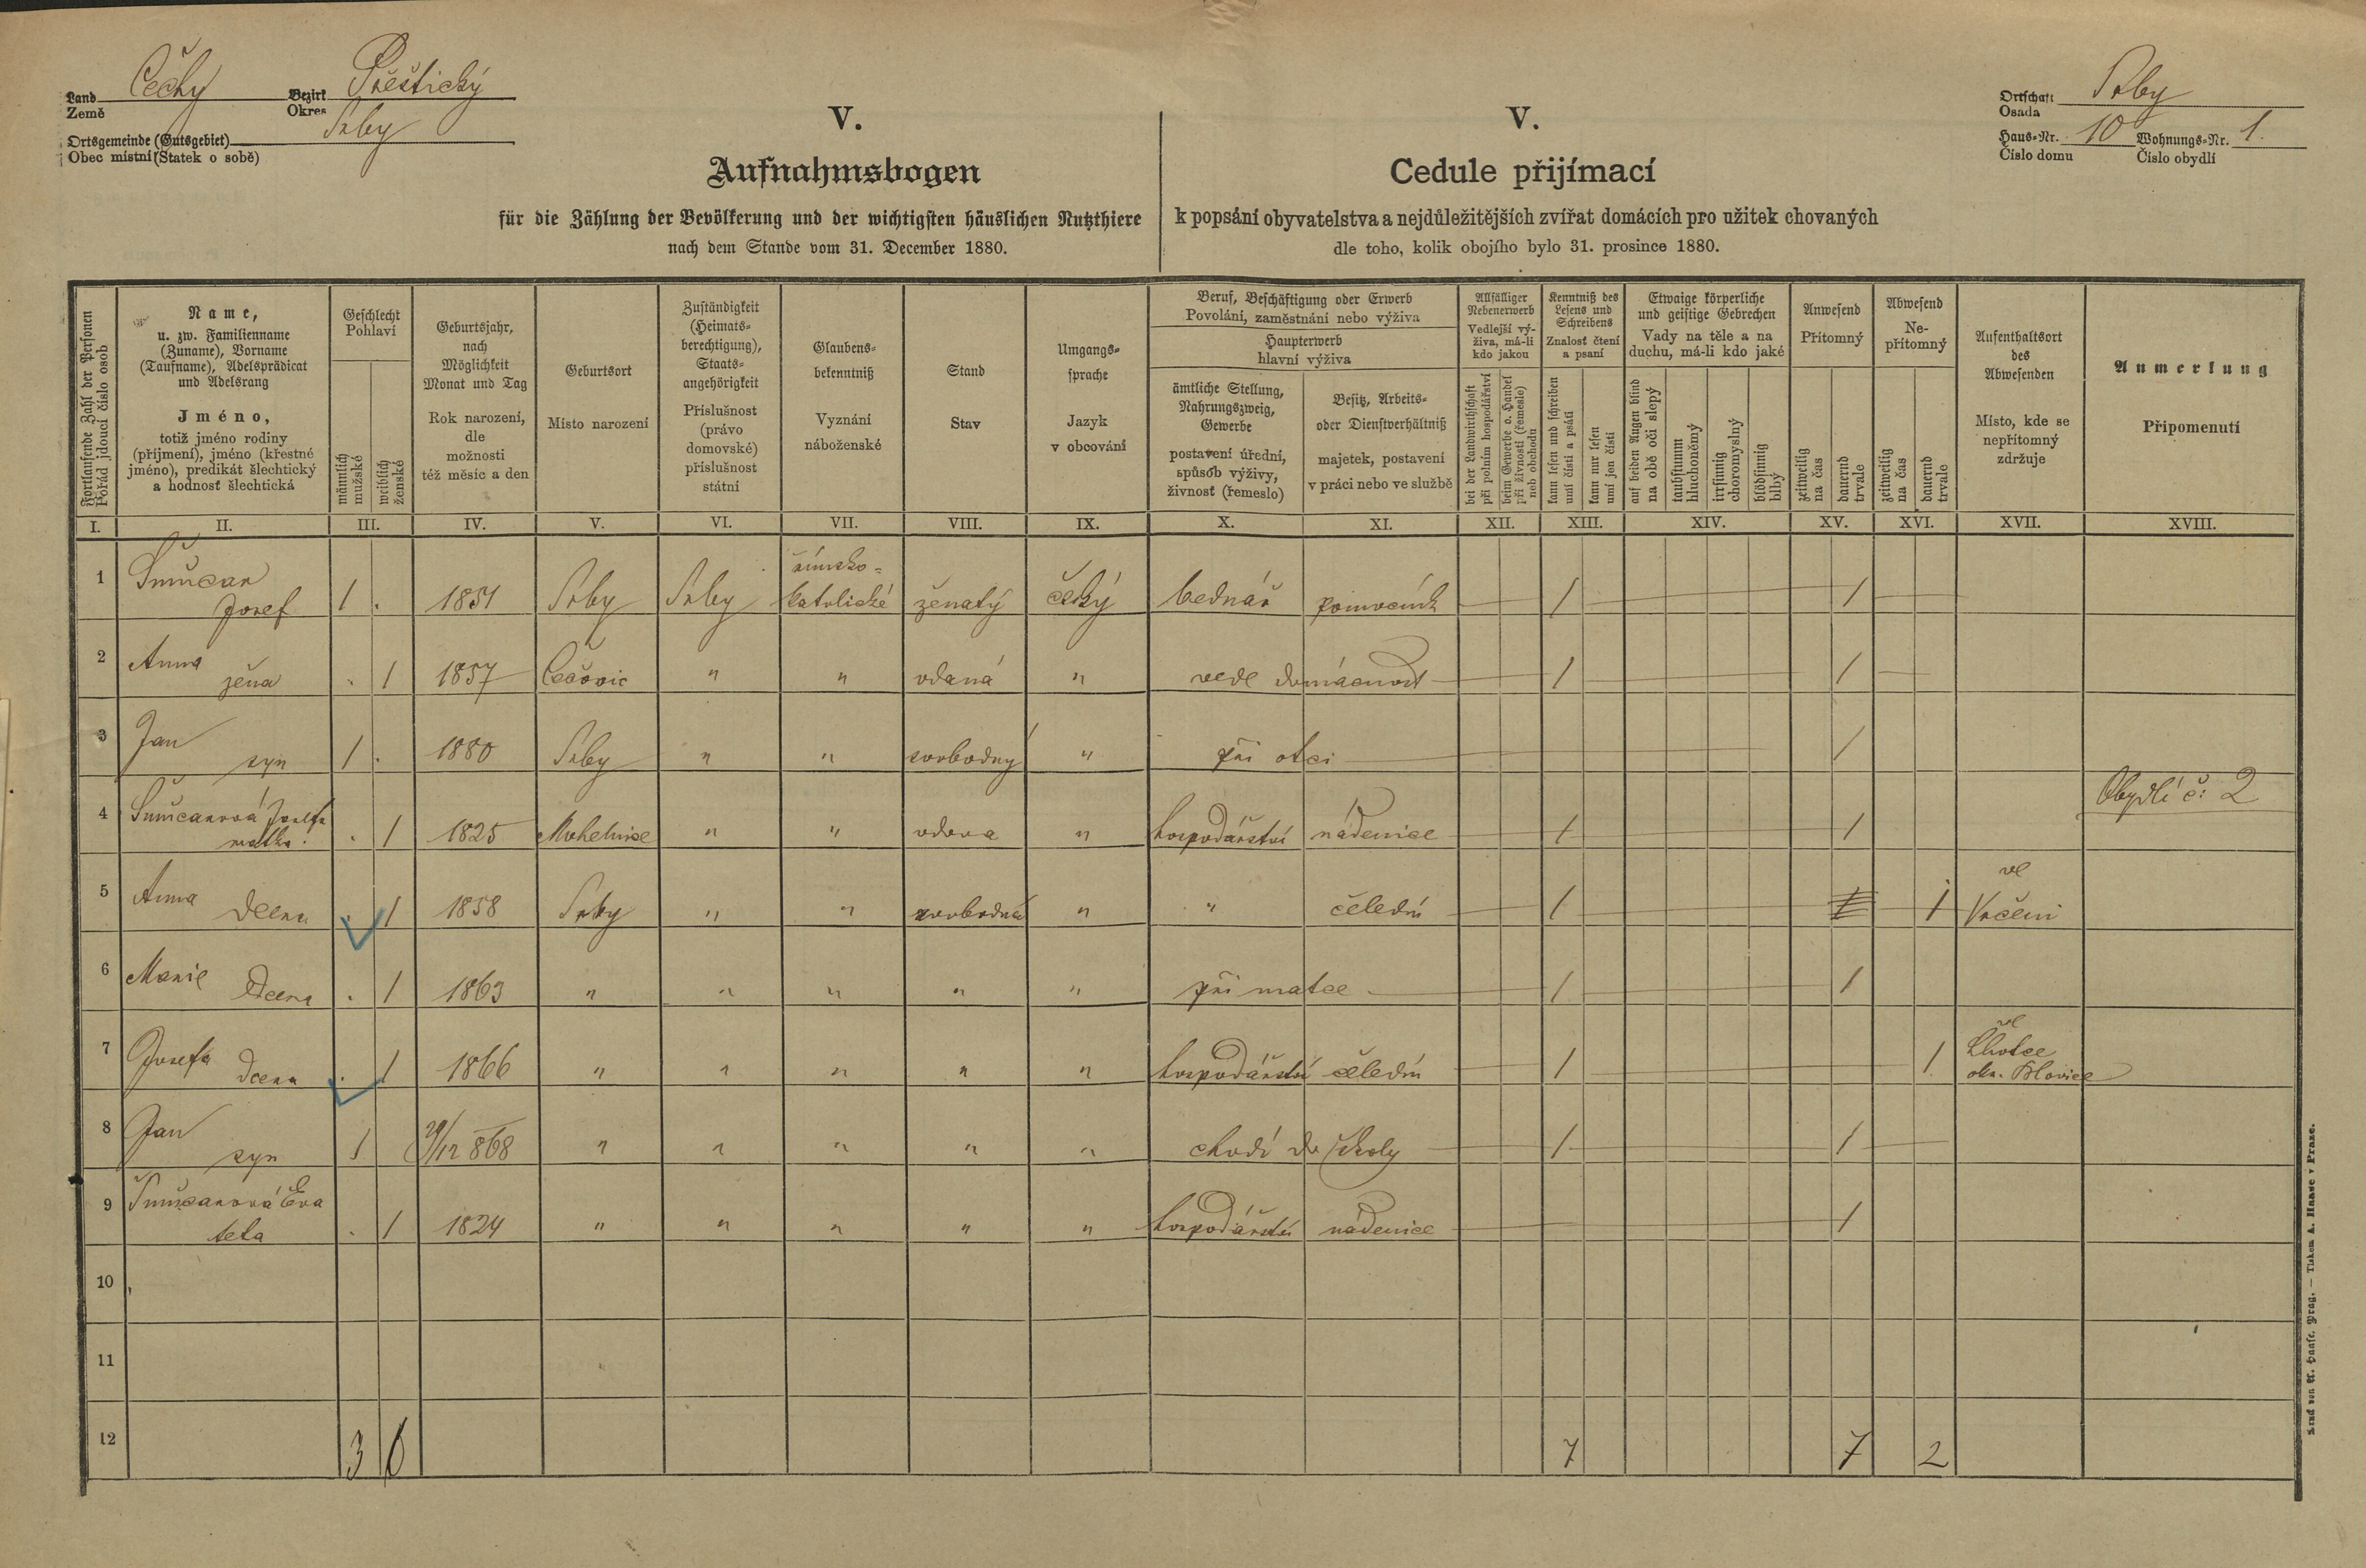 Land Čechy Bezirk Přeštický
Země Okres
Ortsgemeinde (Gutsgebiet) Srby
Obec místní (Statek o sobě)
Ortschaft Srby
Osada
Haus-Nr. 10 Wohnungs-Nr. 1.
Číslo domu Číslo obydlí
V.
Aufnahmsbogen
für die Zählung der Bevölkerung und der wichtigsten häuslichen Nutzthiere
nach dem Stande vom 31. December 1880.
V.
Cedule přijímací
k popsání obyvatelstva a nejdůležitějších zvířat domácích pro užitek chovaných
dle toho, kolik obojího bylo 31. prosince 1880.
Fortlaufende Zahl der Personen
Pořád jdoucí číslo osob
Name,
u. zw. Familienname
(Zuname), Vorname
(Taufname), Adelsprädicat
und Adelsrang
Jméno,
totiž jméno rodiny
(příjmení), jméno (křestné
jméno), predikát šlechtický
a hodnosť šlechtická
Geschlecht
Pohlaví
männlich
mužské
weiblich
ženské
Geburtsjahr,
nach
Möglichkeit
Monat und Tag
Rok narození,
dle
možnosti
též měsíc a den
Geburtsort
Místo narození
Zuständigkeit
(Heimats-
berechtigung),
Staats-
angehörigkeit
Příslušnost
(právo
domovské)
příslušnost
státní
Glaubens-
bekenntniß
Vyznání
náboženské
Stand
Stav
Umgangs-
sprache
Jazyk
v obcování
Beruf, Beschäftigung oder Erwerb
Povolání, zaměstnání nebo výživa
Haupterwerb
hlavní výživa
ämtliche Stellung,
Nahrungszweig,
Gewerbe
postavení úřední,
spůsob výživy,
živnosť (řemeslo)
Besitz, Arbeits-
oder Dienstverhältniß
majetek, postavení
v práci nebo ve službě
Allfälliger
Nebenerwerb
Vedlejší vý-
živa, má-li
kdo jakou
bei der Landwirthschaft
při polním hospodářství
beim Gewerbe o. Handel
při živnosti (řemeslo)
neb obchodu
Kenntniß des
Lesens und
Schreibens
Znalosť čtení
a psaní
kann lesen und schreiben
umí čísti a psáti
kann nur lesen
umí jen čísti
Etwaige körperliche
und geistige Gebrechen
Vady na těle a na
duchu, má-li kdo jaké
auf beiden Augen blind
na obě oči slepý
taubstumm
hluchoněmý
irrsinnig
choromyslný
blödsinnig
blbý
Anwesend
Přítomný
zeitweilig
na čas
dauernd
trvale
Abwesend
Ne-
přítomný
zeitweilig
na čas
dauernd
trvale
Aufenthaltsort
des
Abwesenden
Místo, kde se
nepřítomný
zdržuje
Anmerkung
Připomenutí
I. II. III. IV. V. VI. VII. VIII. IX. X. XI. XII. XIII. XIV. XV. XVI. XVII. XVIII.
1 Smůcar Josef 1 . 1851 Srby Srby římsko-katolické ženatý český bednář pomocník 1 1
2 Anna žena . 1 1857 " " vdaná " vede domácnost 1 1
3 Jan syn 1 . 1880 Srby " " svobodný " při otci 1
Obydlí č: 2
4 Smůcarová Josefa matka . 1 1825 Mohelnice " " vdova " hospodářství nádenice 1 1
5 Anna dcera . 1 1858 Srby " " svobodná " " čeledín 1 1 ve Vrčeni
6 Marie dcera . 1 1863 " " " " " při matce 1 1
7 Josefa dcera . 1 1866 " " " " " hospodářství čeledín 1 1 ve Lhotce okr. Blovice
8 Jan syn 1 29/12 868 " " " " " chodí do školy 1 1
9 Smůcarová Eva teta . 1 1824 " " " " " hospodářství nádenice 1
10
11
12 3 6 7 7 2
Druck von A. Haase, Prag. — Tiskem A. Haase v Praze.